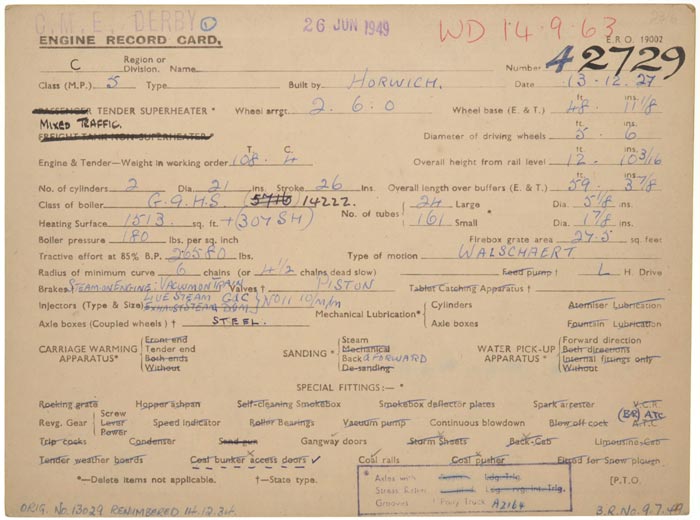 C.M.E. DERBY 1 26 JUN 1949 WD 14.9.63
ENGINE RECORD CARD. E.R.O. 19002
C Region or Division. Name Number 42729
Class (M.P.) 5 Type Built by HORWICH. Date 13.12.27
PASSENGER TENDER SUPERHEATER * Wheel arrgt. 2.6.0 Wheel base (E. & T.) 48 ft. 11 1/8 ins.
MIXED TRAFFIC.
FREIGHT TANK NON-SUPERHEATER Diameter of driving wheels 5 ft. 6 ins.
Engine & Tender—Weight in working order 108 T. 4 C. Overall height from rail level 12 ft. 10 3/16 ins.
No. of cylinders 2 Dia. 21 ins. Stroke 26 Ins. Overall length over buffers (E. & T.) 59 ft. 3 7/8 ins.
Class of boiler G.9.H.S. (5716) 14222. No. of tubes { 24 Large * Dia. 5 1/8 ins.
Heating Surface 1513 sq. ft. +(307 SH) 161 Small Dia. 1 7/8 ins.
Boiler pressure 180 lbs. per sq. inch Firebox grate area 27.5 sq. feet
Tractive effort at 85% B.P. 26580 lbs. Type of motion WALSCHAERT
Radius of minimum curve 6 chains (or 4 1/2 chains dead slow) Feed pump † L H. Drive
Brakes STEAM ON ENGINE: VACUUM ON TRAIN Valves † PISTON Tablet Catching Apparatus †
Injectors (Type & Size) LIVE STEAM EXHAUST STEAM } NO 11 10 m/m Mechanical Lubrication* { Cylinders Atomiser Lubrication
Axle boxes (Coupled wheels) † STEEL. Axle boxes Fountain Lubrication
CARRIAGE WARMING APPARATUS* { Front end Tender end Both ends Without SANDING * { Steam Mechanical Back & FORWARD De-sanding WATER PICK-UP APPARATUS * { Forward direction Both directions Internal fittings only Without
SPECIAL FITTINGS:— *
Rocking grate Hopper ashpan Self-cleaning Smokebox Smokebox deflector plates Spark arrester V.C.R.
Revg. Gear { Screw Lever Power Speed Indicator Roller Bearings Vacuum pump Continuous blowdown Blow off cock (BR) ATC A.T.C.
Trip cocks Condenser Sand gun Gangway doors Storm Sheets Back Cab Limousine Cab
Tender weather boards Coal bunker access doors ✓ Coal rails Coal pusher Fitted for Snow plough
*—Delete items not applicable. †—State type. [P.T.O.
* Axles with Stress Relief Grooves
Pony Truck A2164
ORIG. NO. 13029 RENUMBERED 14.12.34 B.R. No. 9.7.49